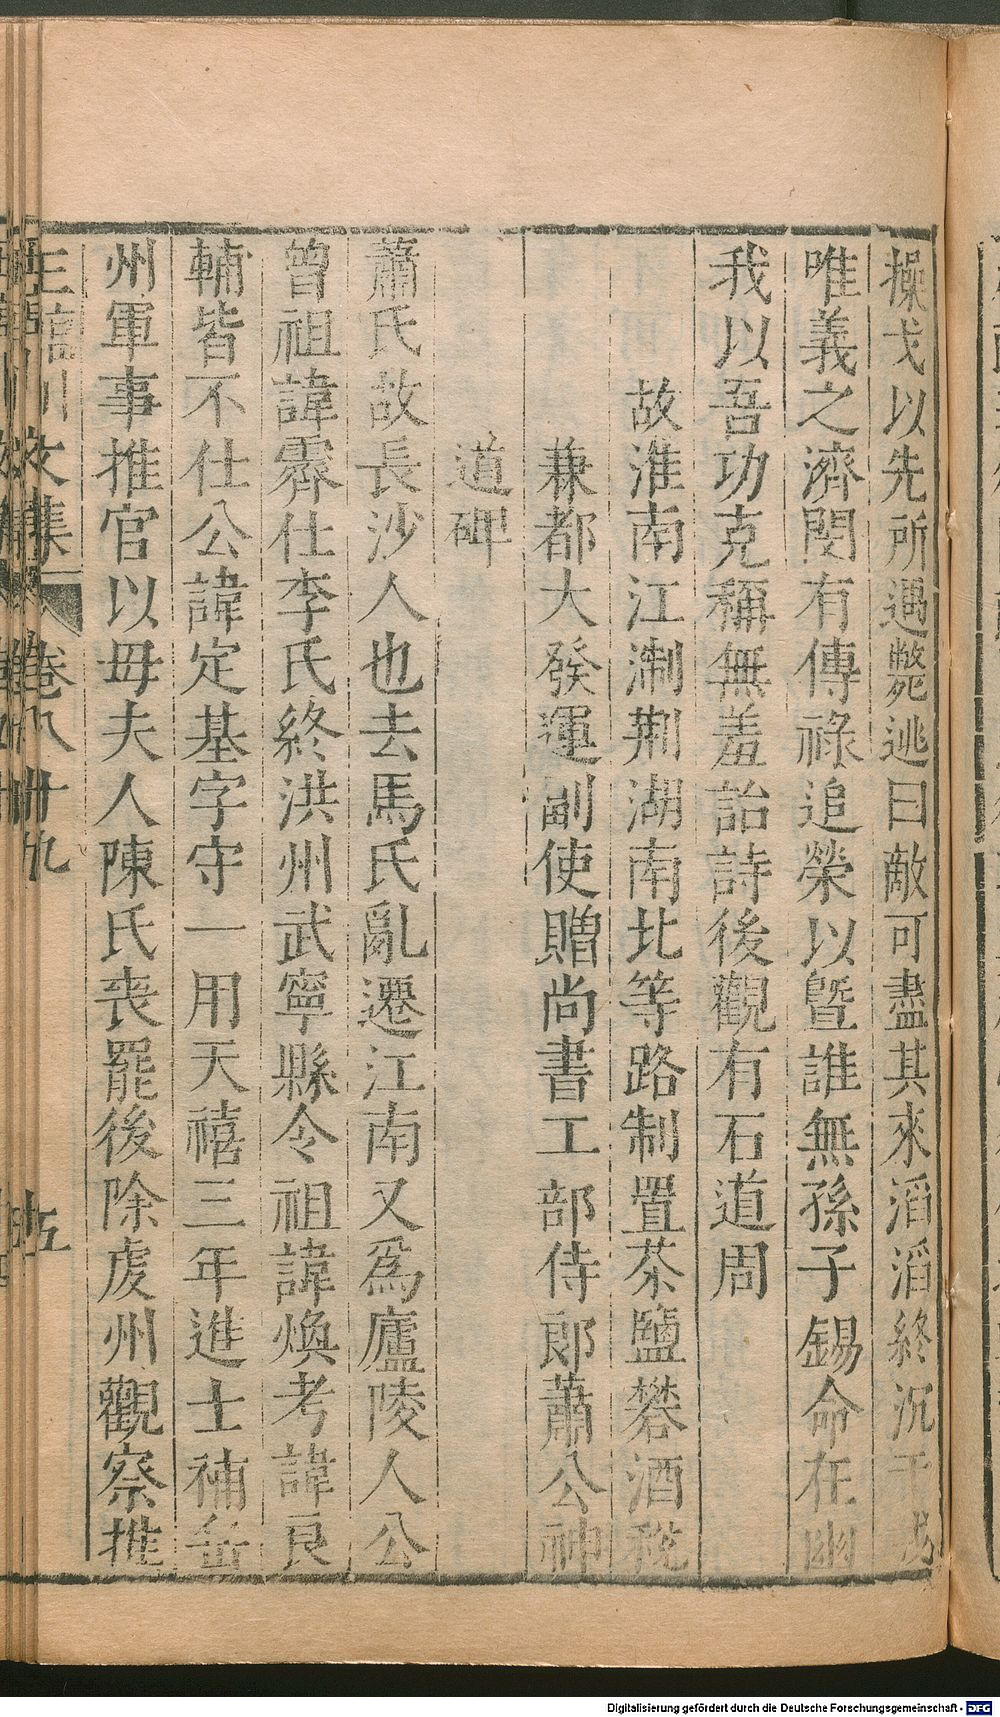 操戈以先所遇斃逃曰敵可盡其來滔滔終沉于
唯義之濟閔有傳祿追榮以暨誰無孫子錫命在幽
我以吾功克稱無羞詒詩後觀有石道周
故淮南江淛荆湖南北等路制置茶鹽礬酒稅
兼都大發運副使贈尚書工部侍郎蕭公神
道碑
蕭氏故長沙人也去馬氏亂遷江南又爲廬陵人公
曾祖諱霽仕李氏終洪州武寧縣令祖諱煥考諱良
輔皆不仕公諱定基字守一用天禧三年進士補岳
州軍事推官以毋夫人陳氏喪罷後除虔州觀察推
王臨川文集 卷八十九 十五
Digitalisierung gefördert durch die Deutsche Forschungsgemeinschaft - DFG